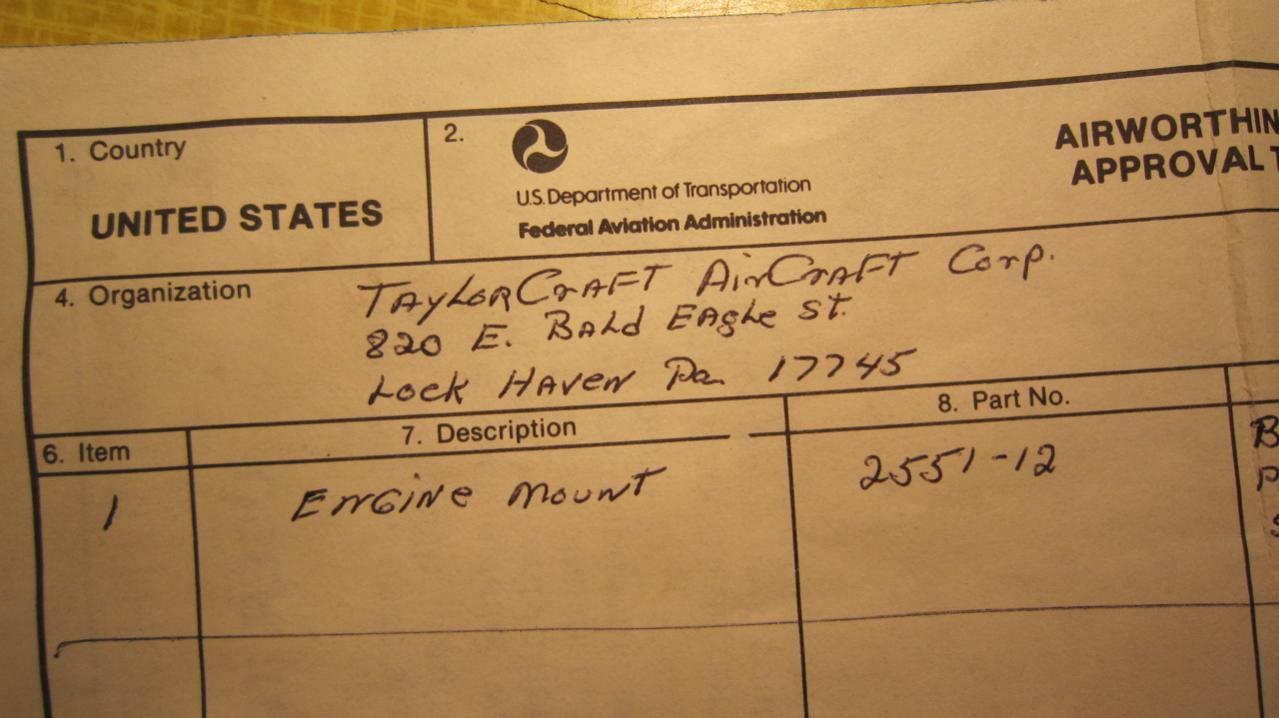 1. Country
UNITED STATES
2.
U.S. Department of Transportation
Federal Aviation Administration
AIRWORTHIN
APPROVAL T
4. Organization
TAYLORCRAFT AIRCRAFT Corp.
820 E. BALd EAgLe St.
Lock HAVEN Pa. 17745
6. Item
7. Description
8. Part No.
1
ENGINe mount
2551-12